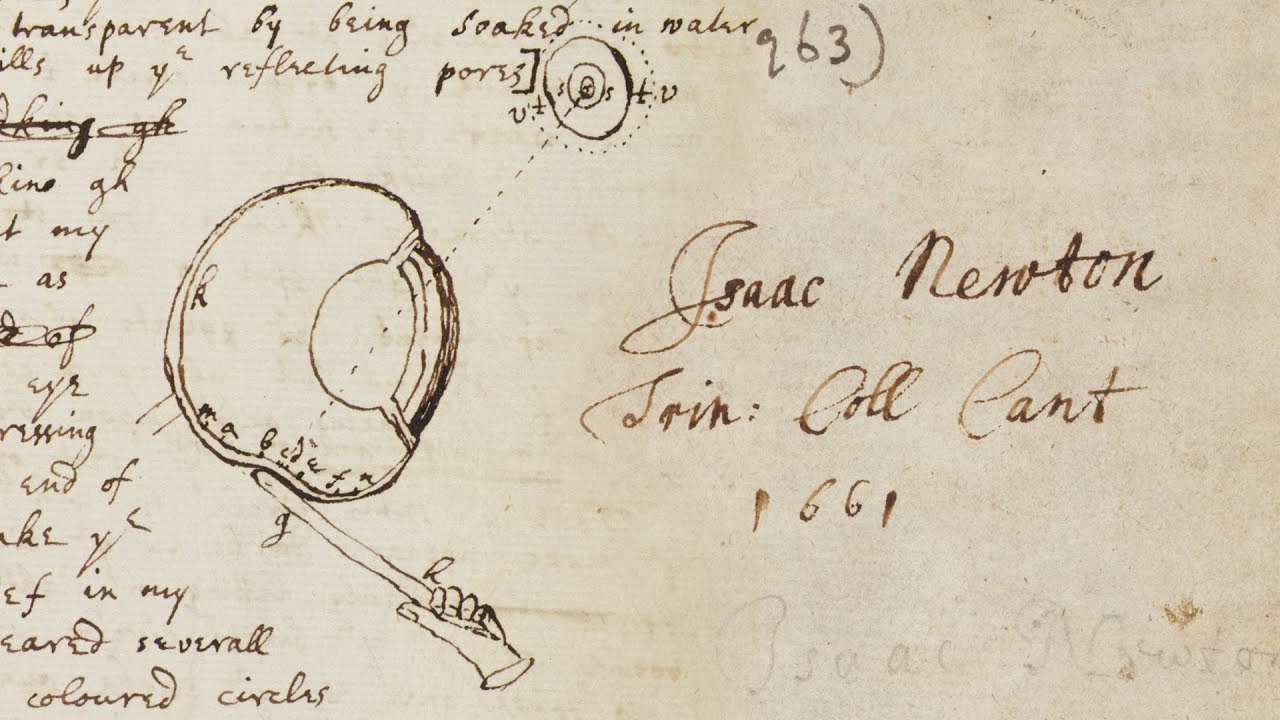 transparent by being soaked in water
ills up yᵉ reflecting pores]
dking gh
king gh
t my
as
d of
eye
ressing
end of
ake yᵉ
ef in my
eared severall
coloured circles
v t s s t v
k
m a b c d e f n
g
h
963)
Isaac Newton
Trin: Coll Cant
1661
Isaac Newton